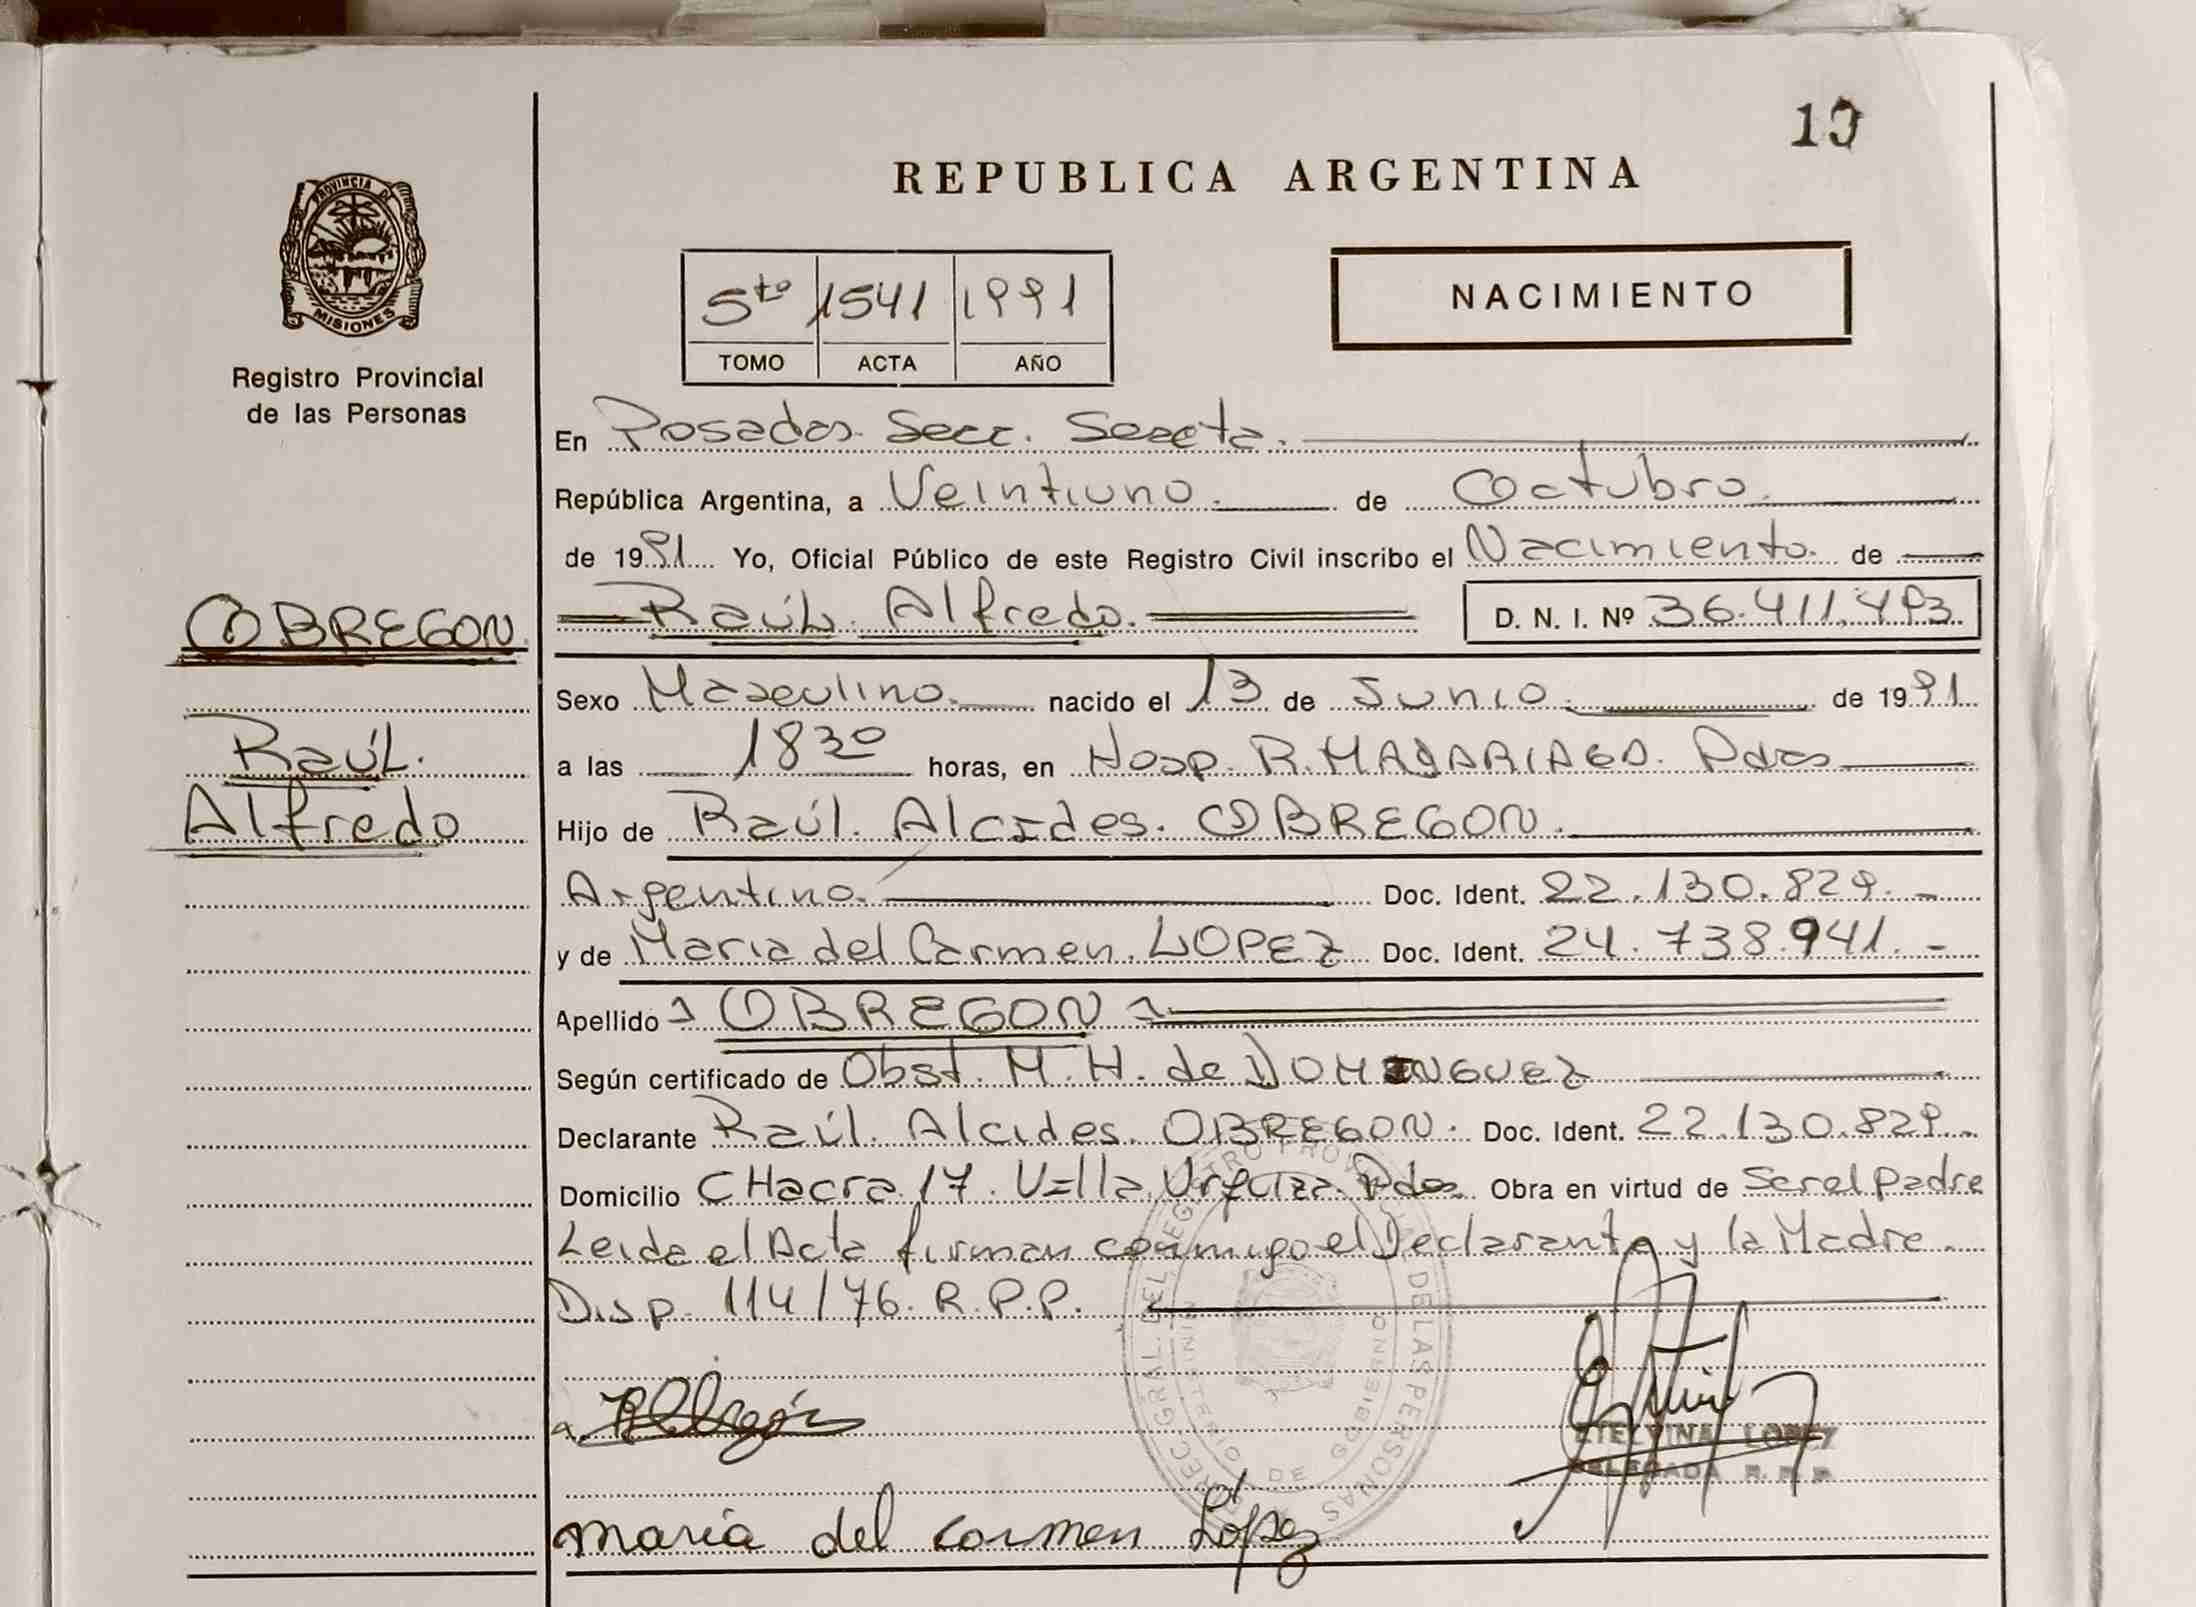 10
REPUBLICA ARGENTINA
PROVINCIA DE
MISIONES
Registro Provincial
de las Personas
5to 1541 1991
TOMO ACTA AÑO
NACIMIENTO
En Posadas. Secc. Sexta.
República Argentina, a Veintiuno. de Octubre.
de 1991 Yo, Oficial Público de este Registro Civil inscribo el Nacimiento. de
OBREGON.
Raúl. Alfredo. D. N. I. Nº 36.411.493
Sexo Masculino. nacido el 13 de Junio. de 1991
Raúl.
a las 18 30 horas, en Hosp. R. MADARIAGA. Pdas
Alfredo
Hijo de Raúl. Alcides. OBREGON.
Argentino. Doc. Ident. 22.130.829.-
y de Maria del Carmen. LOPEZ Doc. Ident. 24.738.941.-
Apellido OBREGON
Según certificado de Obst. M. H. de DOMINGUEZ
Declarante Raúl. Alcides. OBREGON. Doc. Ident. 22.130.829.-
Domicilio CHacra 17. Villa Urquiza. Pdas Obra en virtud de Ser el padre
Leida el Acta firman conmigo el Declarante y la Madre.
Disp. 114/76. R.P.P.
DIREC. GRAL. DEL REGISTRO PROVINCIAL DE LAS PERSONAS
MINISTERIO DE GOBIERNO
ETELVINA LOPEZ
DELEGADA R. P. P.
maria del carmen López